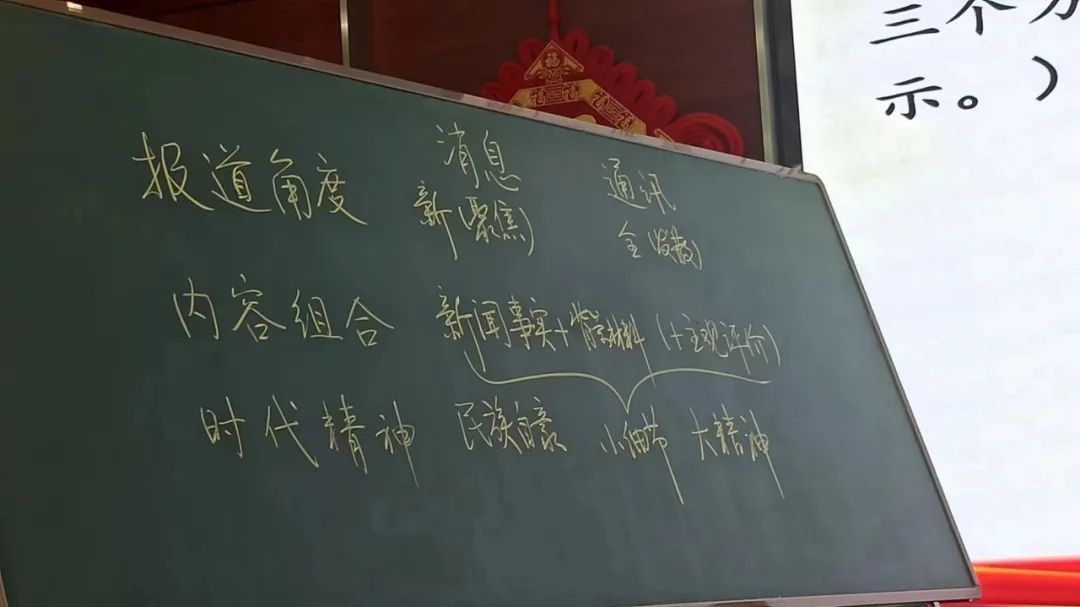 三个方
示。）
福
福 福 福
报道角度 消息 通讯
新(聚焦) 全(发散)
内容组合 新闻事实+背景材料(+主观评价)
时代精神 民族自豪 小细节 大精神